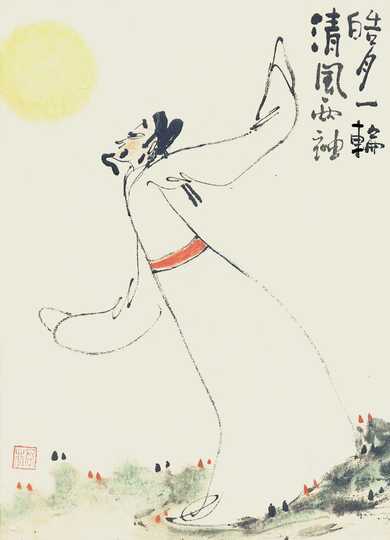 皓月一輪
清風兩袖